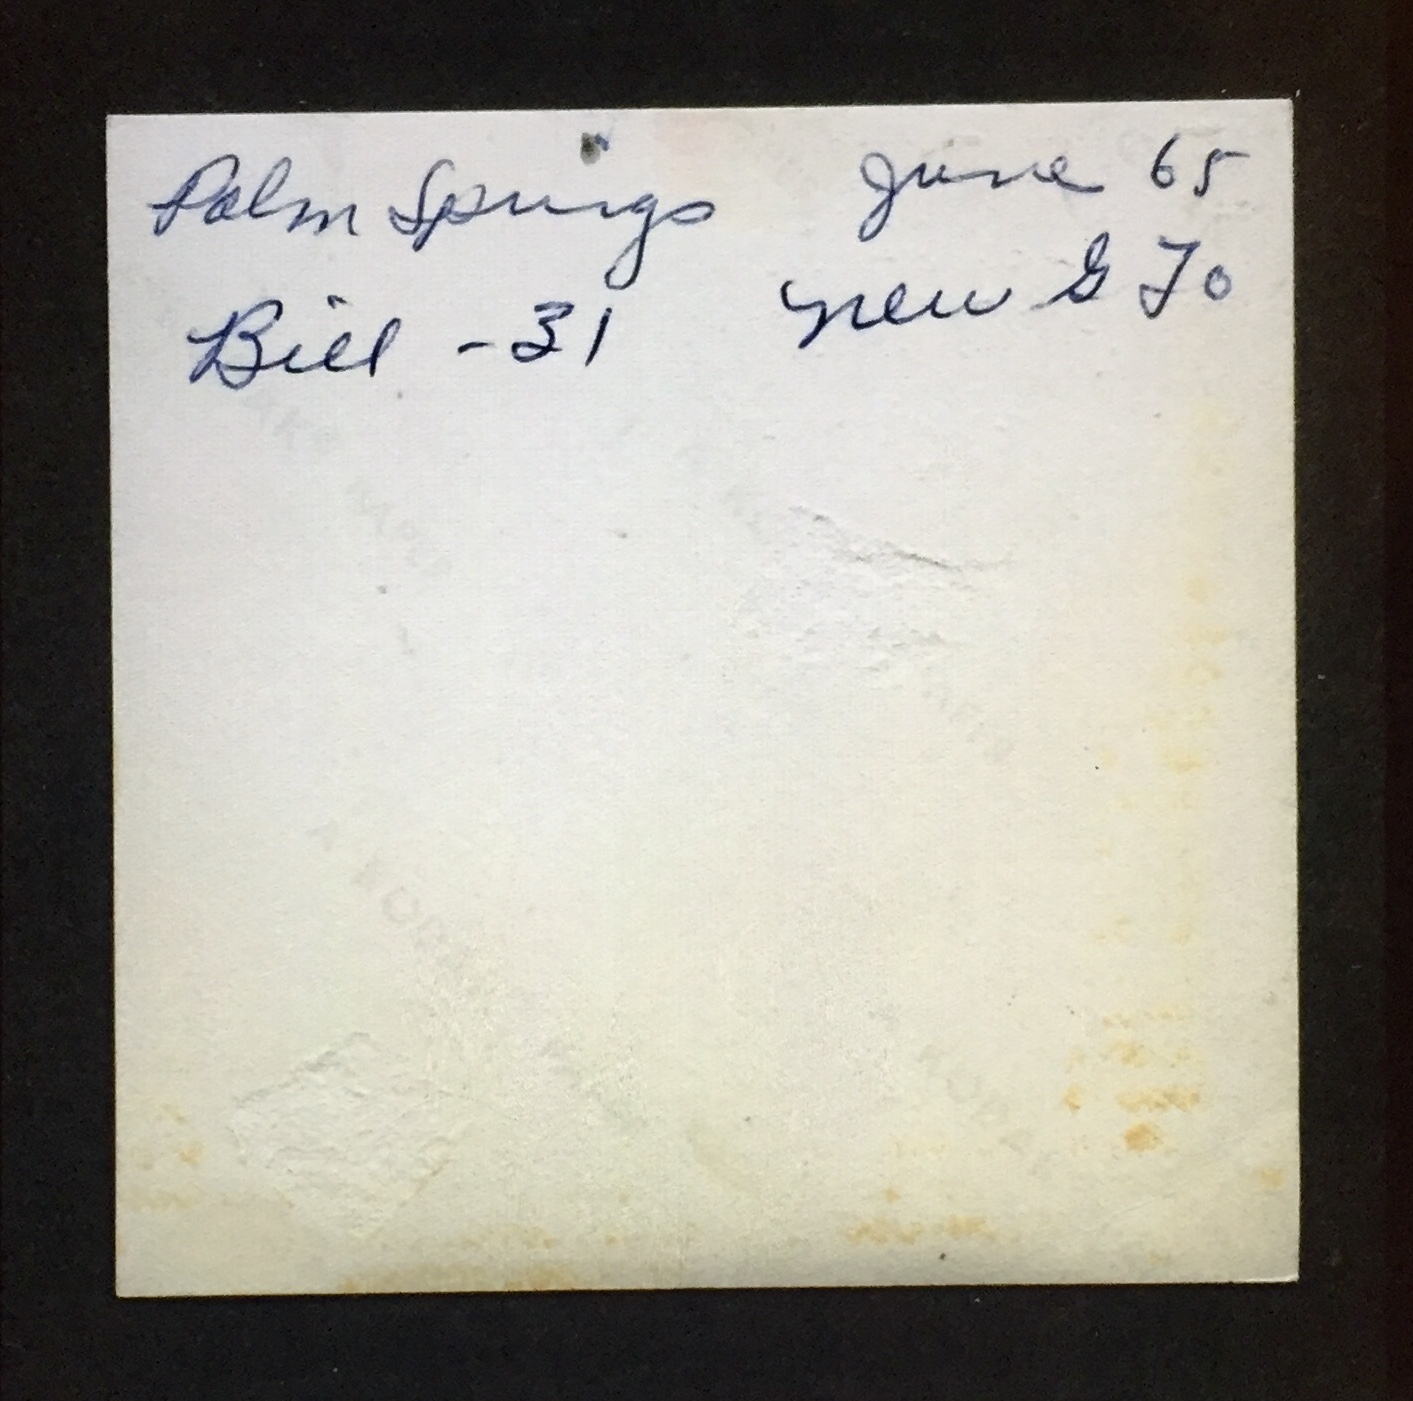 Palm Springs June 65
Bill - 31 new G To